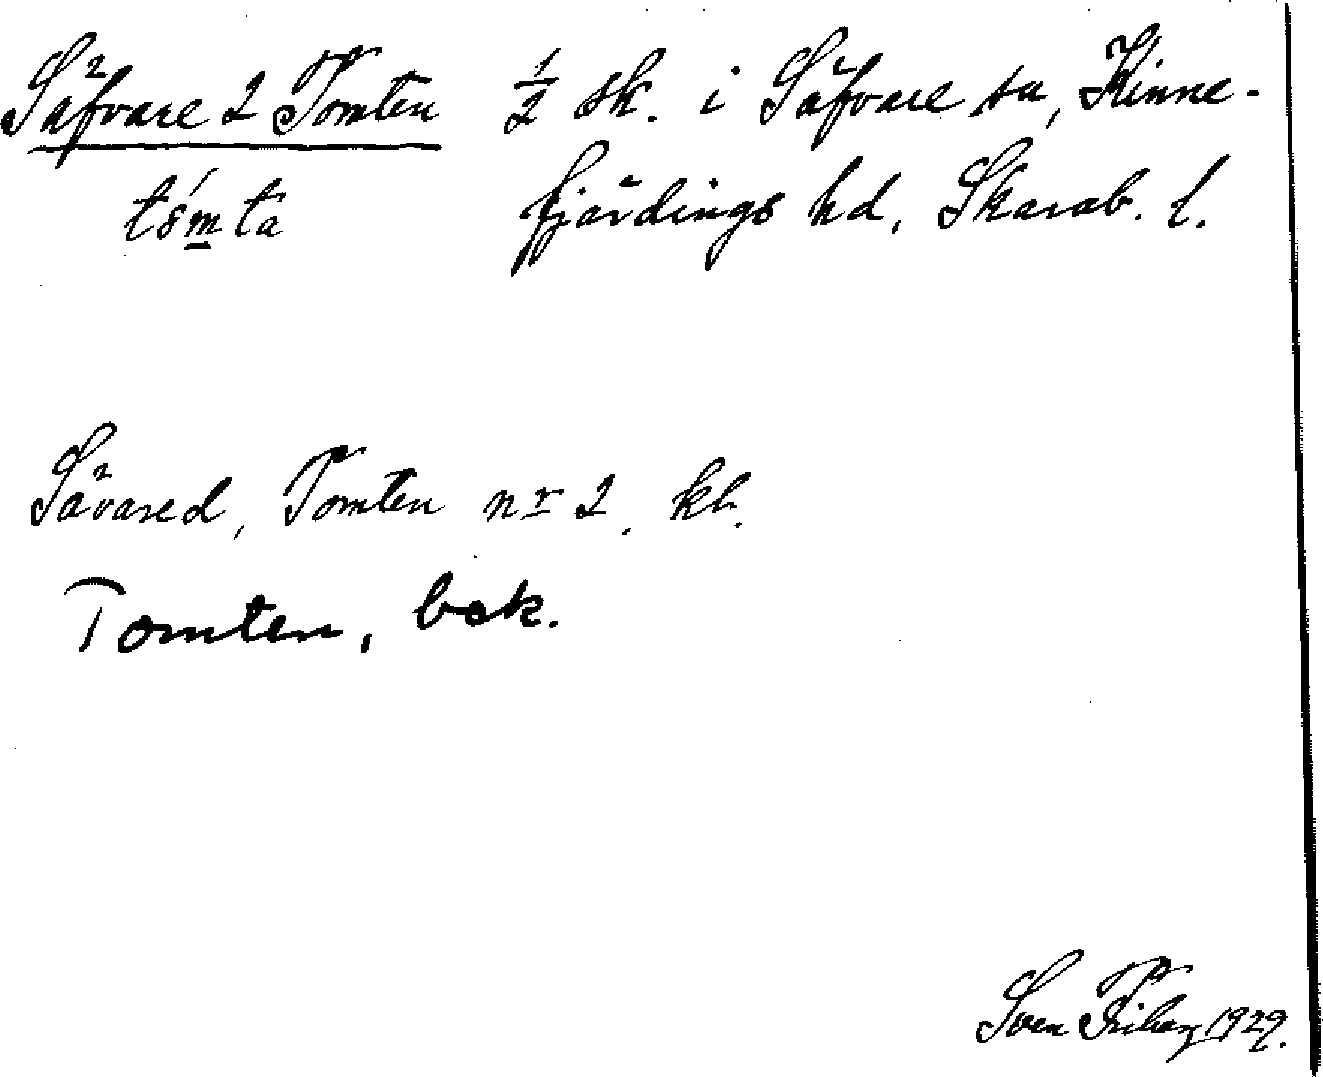 Säfvare 2 Tomten ½ sk. i Säfvare sn, Kinne-
fjärdings hd, Skarab. l.
tómta
Sävared, Tomten nr 2. kh.
Tomten, bsk.
Sven Friberg 1929.